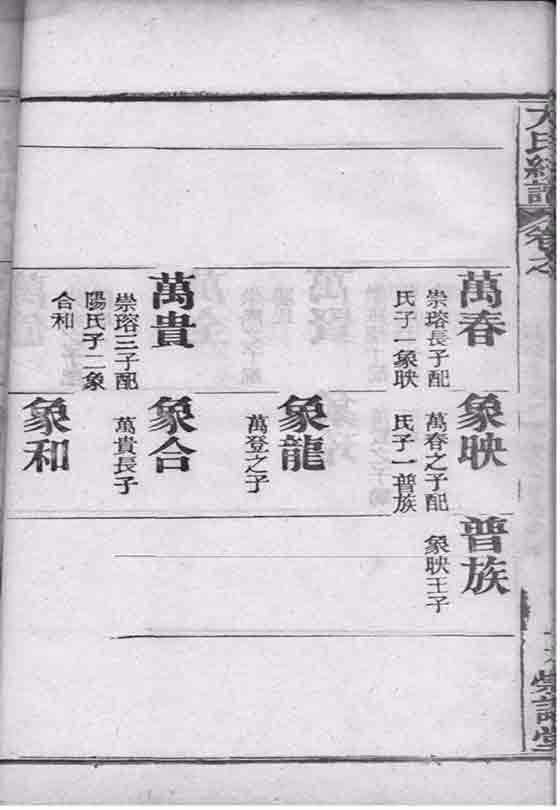 萬春
崇瑢長子配
氏子一象映
萬貴
崇瑢三子配
陽氏子二象
合和
象映
萬春之子配
氏子一普族
象龍
萬登之子
象合
萬貴長子
象和
普族
象映王子